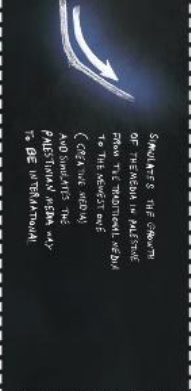 SIMULATES THE GROWTH
OF THE MEDIA IN PALESTINE
FROM THE TRADITIONAL MEDIA
TO THE NEWEST ONE
(CREATIVE MEDIA)
AND SIMULATES THE
PALESTINIAN MEDIA WAY
TO BE INTERNATIONAL